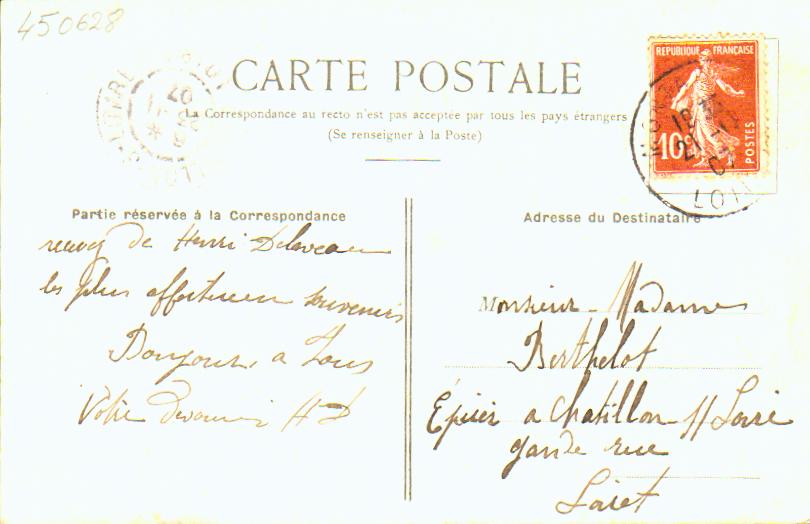 450628
CARTE POSTALE
La Correspondance au recto n'est pas acceptée par tous les pays étrangers
(Se renseigner à la Poste)
REPUBLIQUE FRANÇAISE
10
POSTES
Partie réservée à la Correspondance
recevez de Henri Delaveau
les plus affectueux souvenirs
Bonjour a Tous
Votre HD
Adresse du Destinataire
Monsieur Madame
Berthelot
Épicier a Chatillon s/ Loire
grande rue
Loiret